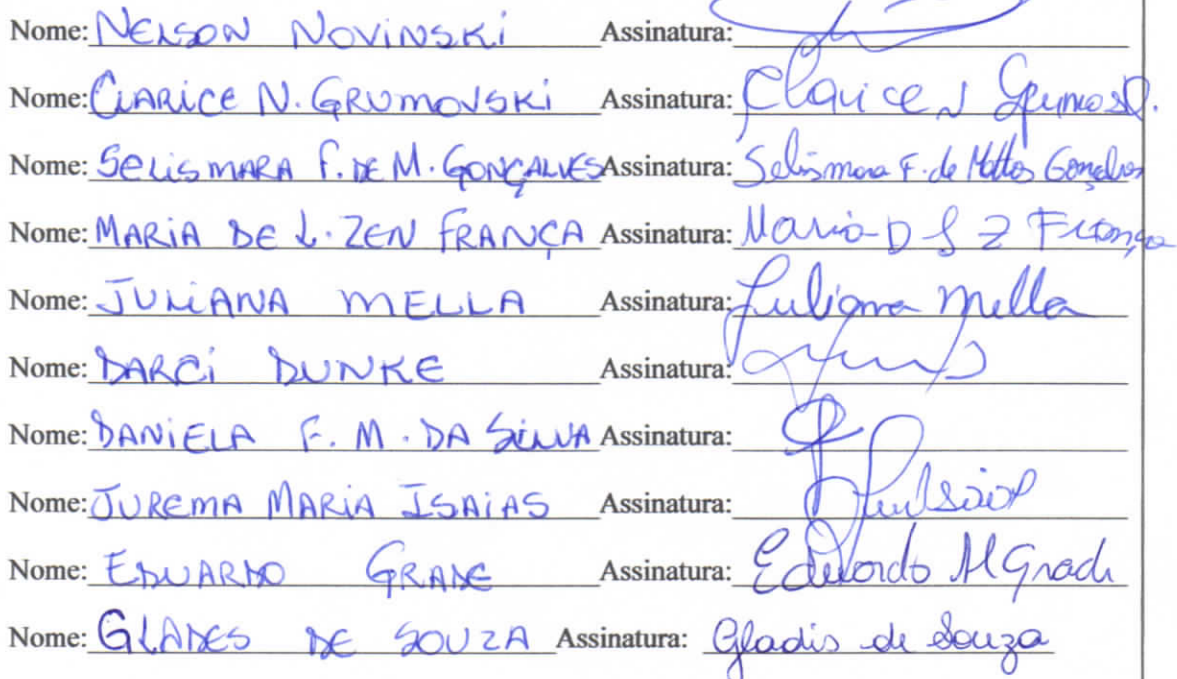 Nome: NELSON NOVINSKI Assinatura:
Nome: CLARICE N. GRUMOVSKI Assinatura: Clarice N
Nome: SELISMARA F. DE M. GONÇALVES Assinatura: Selismara F. de Mattos Gonçalves
Nome: MARIA DE L. ZEN FRANÇA Assinatura: Maria D L Z França
Nome: JULIANA MELLA Assinatura: Juliana Mella
Nome: DARCI DUNKE Assinatura:
Nome: DANIELA F. M. DA SILVA Assinatura:
Nome: JUREMA MARIA ISAIAS Assinatura:
Nome: EDUARDO GRADE Assinatura: Eduardo M Grade
Nome: GLADES DE SOUZA Assinatura: Gladis de Souza